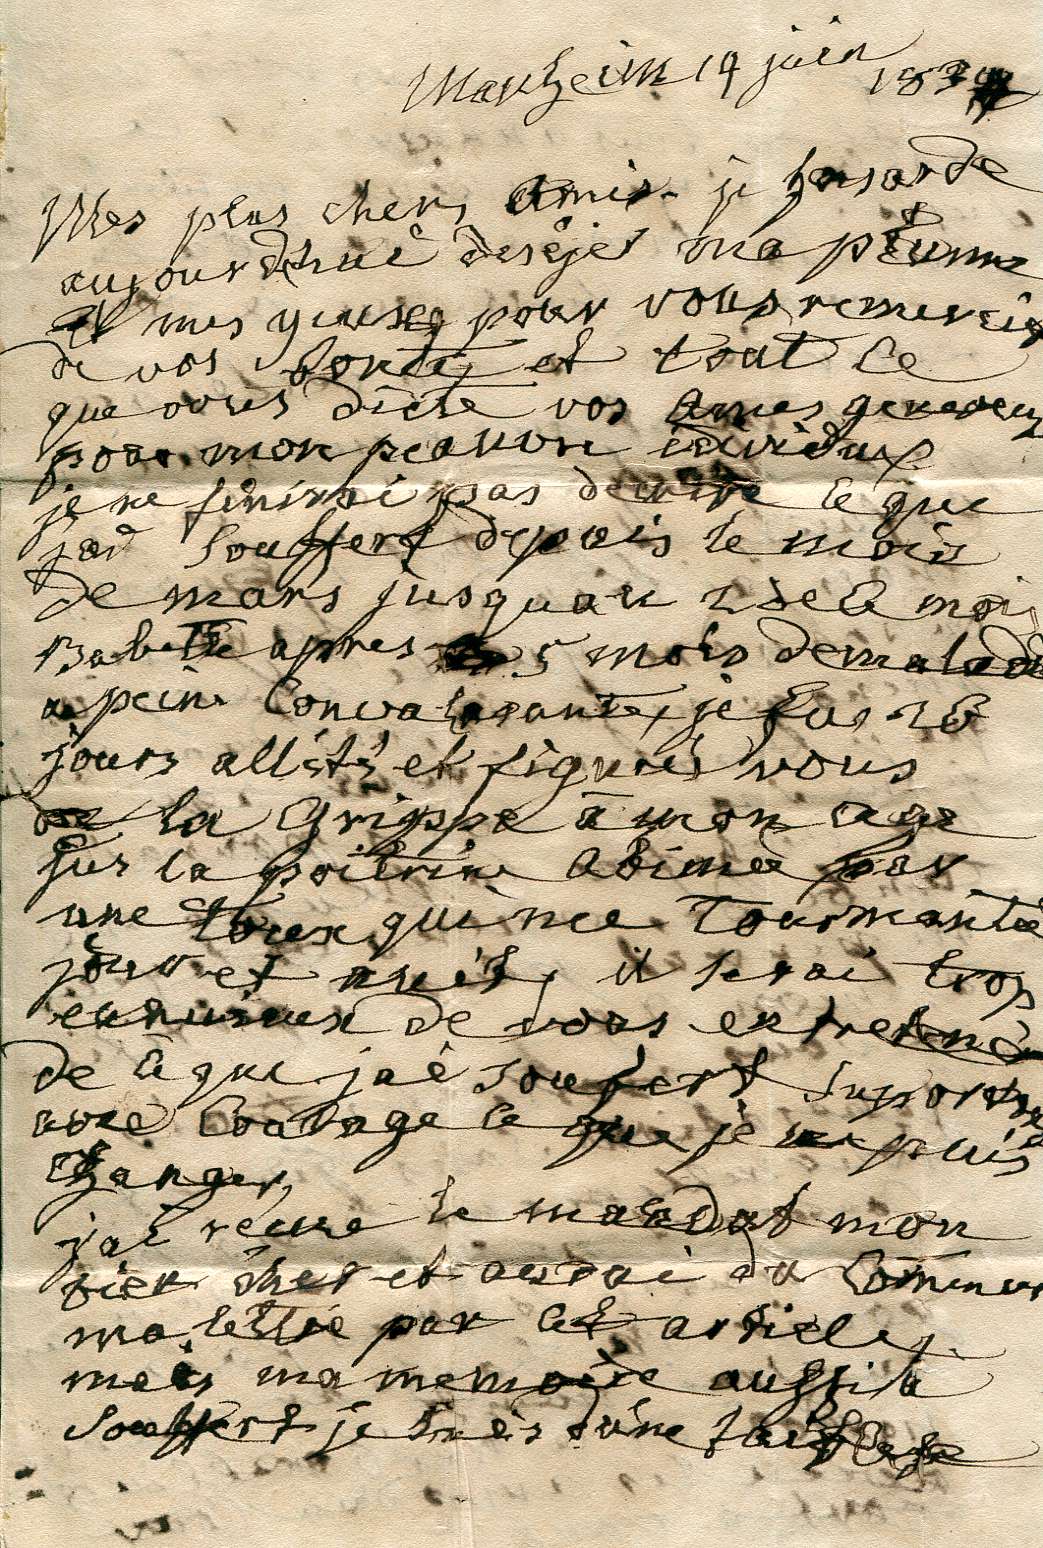 Manheim 14 juin 183
Mes plus chers Amis. je hasarde
aujourdhuè ma plume
et mes yeuse pour vous remercier
de vos bontes et tout ce
que vous dicte vos ames genereus
pour mon peauvre individus
je ne finirai pas decrire ce que
jai souffert depuis le mois
de mars jusquau 2 de ce moi
Babette apres 5 mois de maladie
a peine convalesante, je fus 28
jours allités et figurés vous
la Grippe a mon age
sur la poitrine abimee par
une toux qui me Tourmante
jour et nuit, il serai trop
ennuieux de vous entretenè
de ce que jaè soufert suportons
avec courage ce que je ne puis
changer,
jai recue le mandat mon
bien cher et aurai du Commencer
ma lettre par cet article,
mais ma memoire aussi a
Souffert je suis dune faiblesse